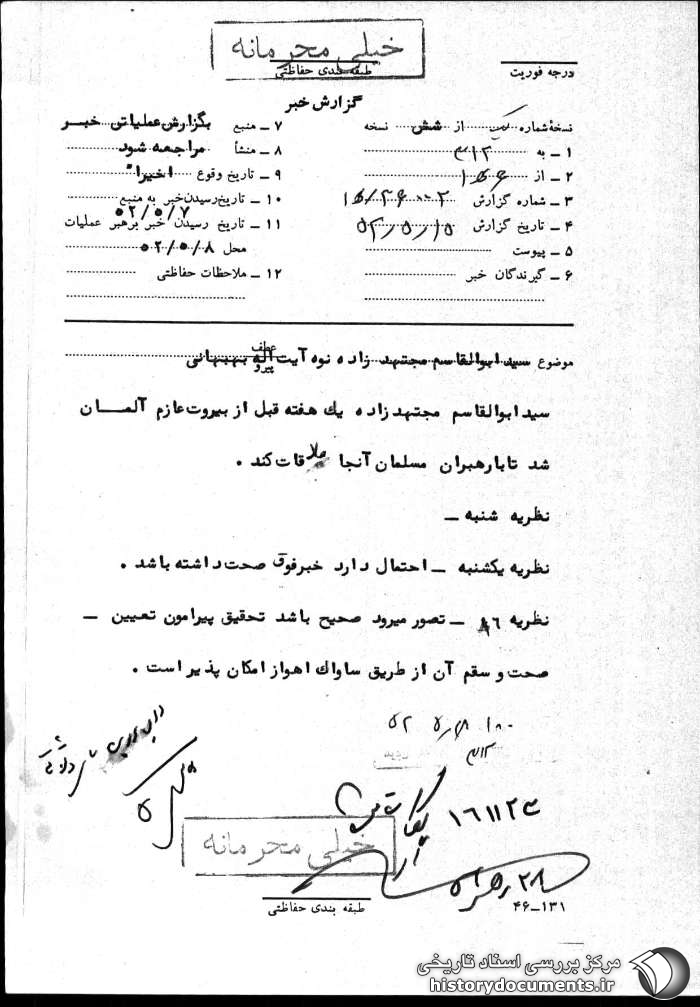 خیلی محرمانه
طبقه بندی حفاظتی
درجه فوریت
گزارش خبر
نسخهٔ شماره یک از شش نسخه
۱ــ به ۳۱۲
۲ــ از
۳ــ شماره گزارش
۴ــ تاریخ گزارش
۵ــ پیوست
۶ــ گیرندگان خبر
۷ــ منبع بگزارش عملیاتی خبر
۸ــ منشأ مراجعه شود
۹ــ تاریخ وقوع اخیرا"
۱۰ــ تاریخ رسیدن خبر به منبع ۵۲/۵/۷
۱۱ــ تاریخ رسیدن خبر برهبر عملیات
محل ۵۲/۵/۸
۱۲ــ ملاحظات حفاظتی
موضوع سید ابوالقاسم مجتهد زاده نوه آیت اله بهبهانی
عطف
پیرو
سید ابوالقاسم مجتهد زاده یك هفته قبل از بیروت عازم آلمان
شد تا با رهبران مسلمان آنجا ملاقات کند .
نظریه شنبه ــ
نظریه یکشنبه ــ احتمال دارد خبر فوق صحت داشته باشد .
نظریه ۸۶ ــ تصور میرود صحیح باشد تحقیق پیرامون تعیین ــ
صحت و سقم آن از طریق ساواك اهواز امکان پذیر است .
۳۱۲
خیلی محرمانه
طبقه بندی حفاظتی
۴۶ــ۱۳۱
مرکز بررسی اسناد تاریخی
historydocuments.ir